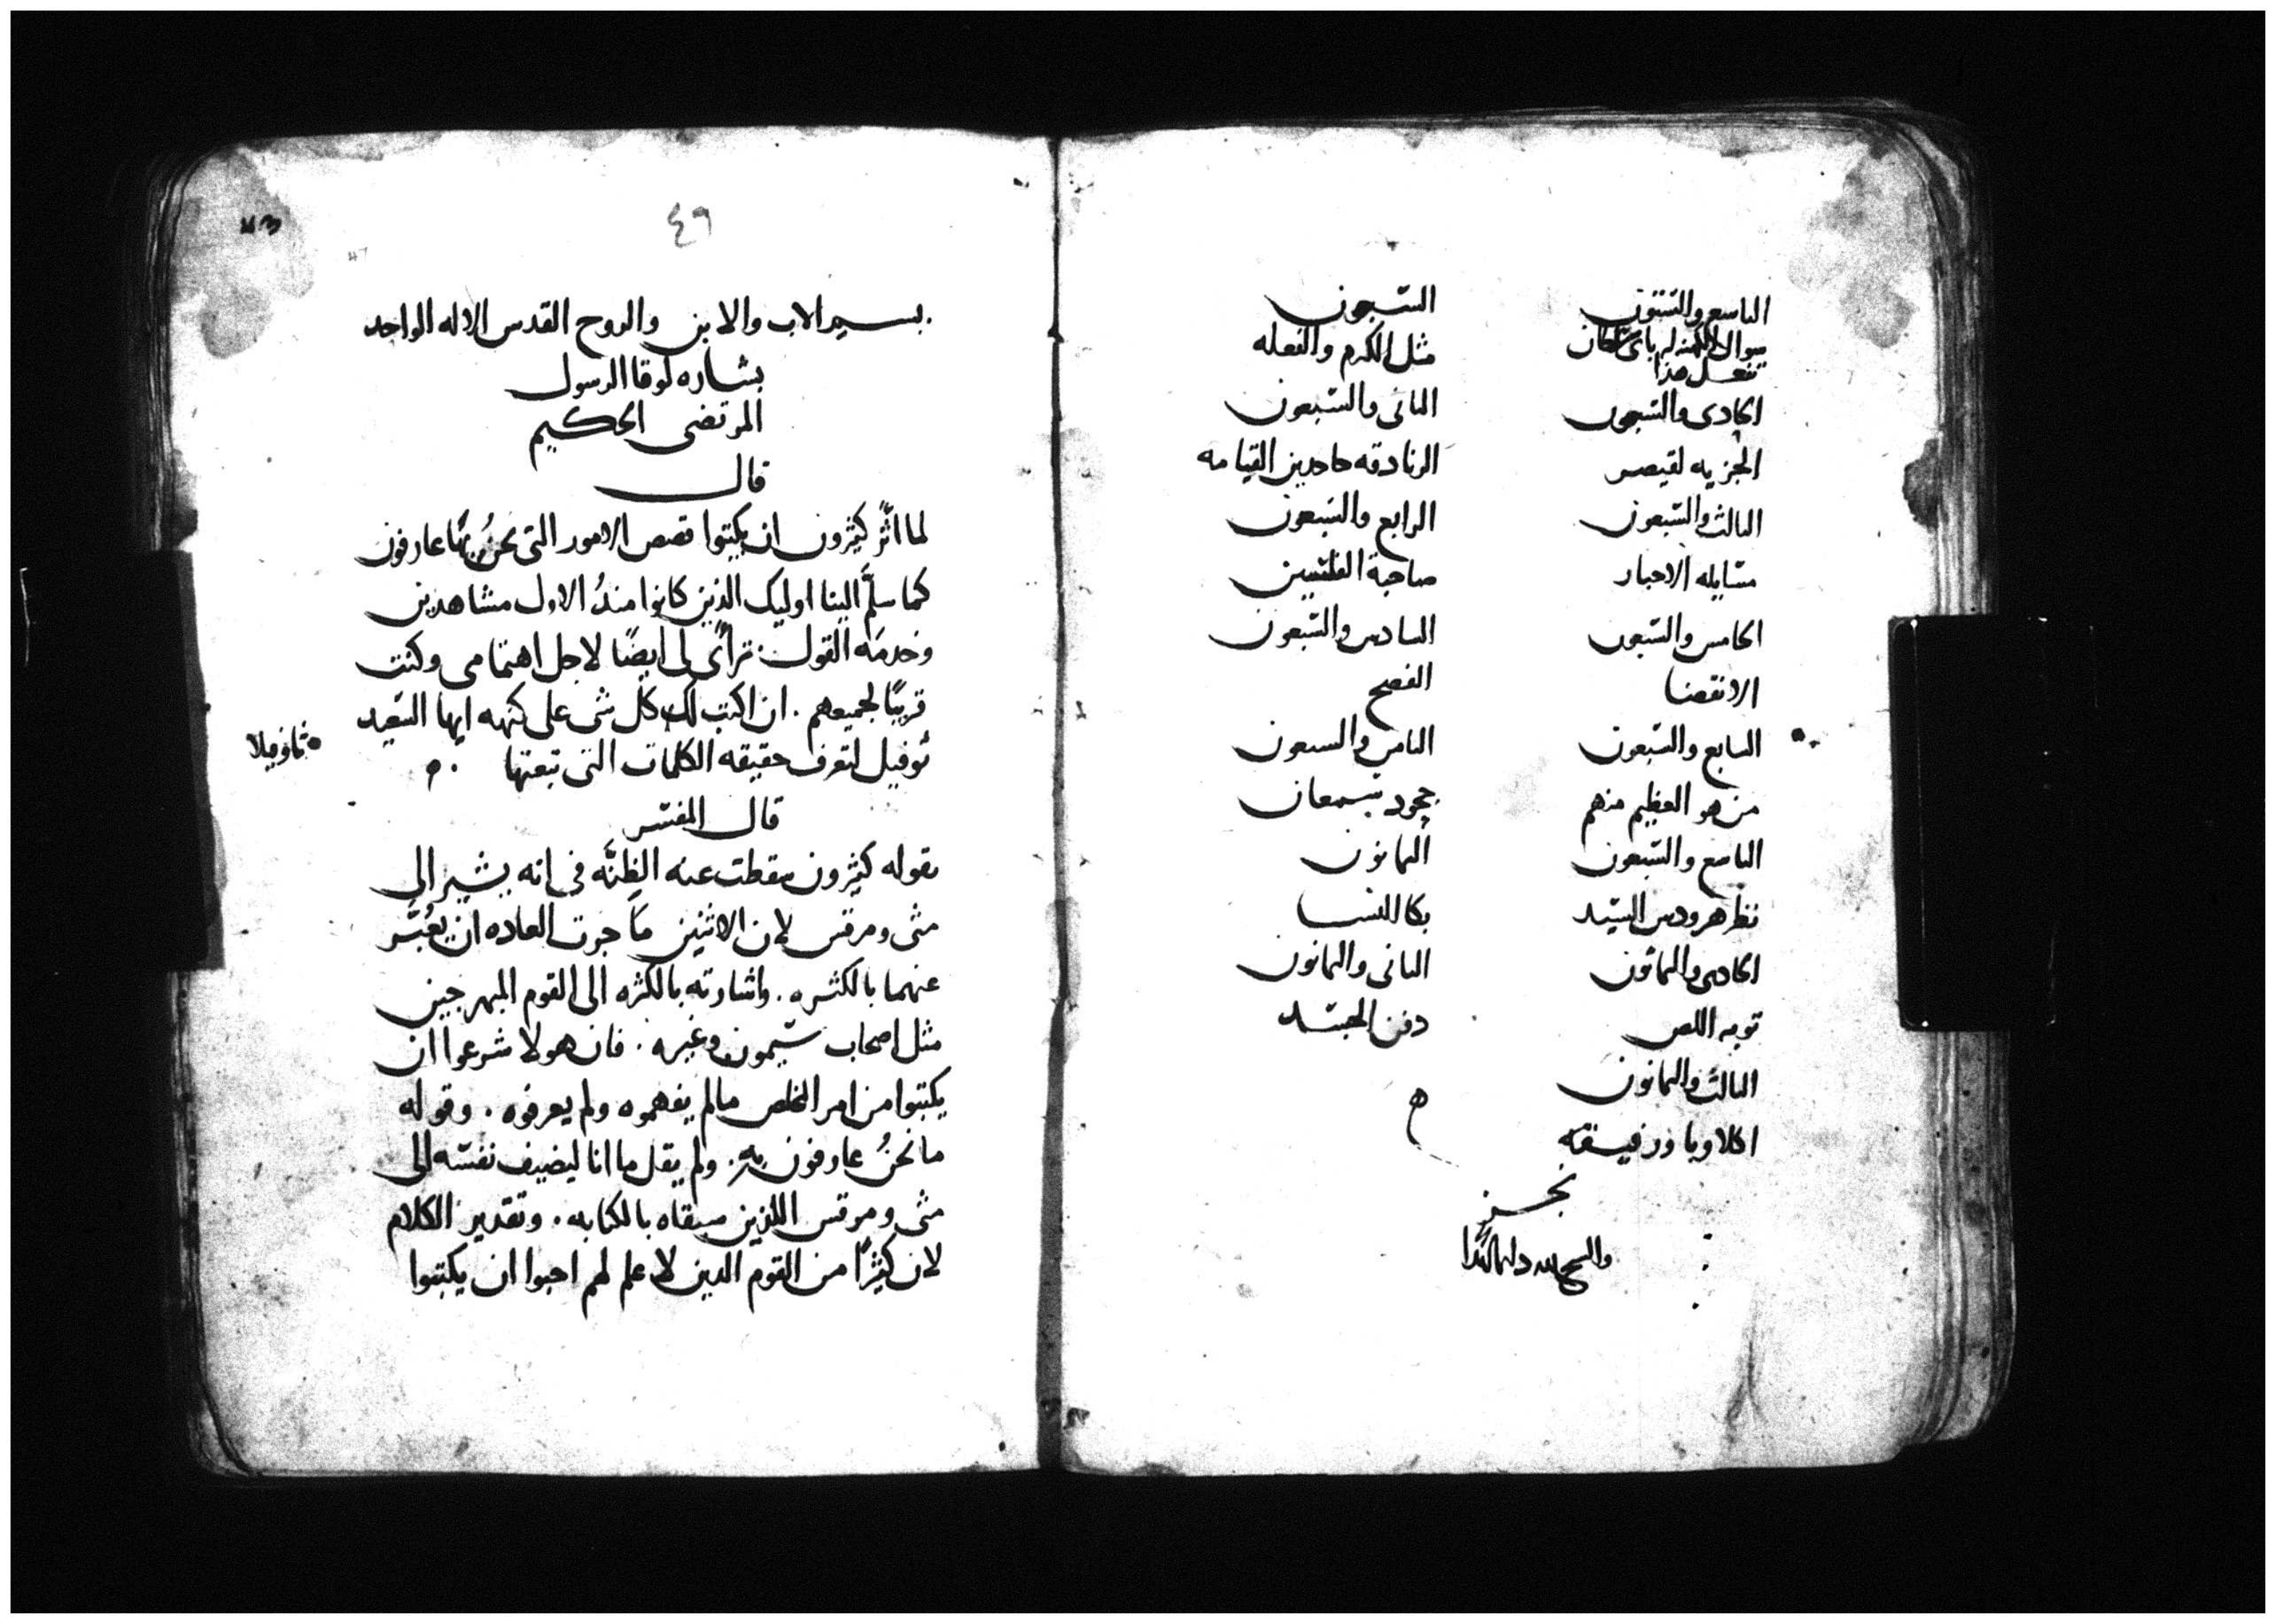 التاسع والستون
السبعون
سوال الكهنه له باى سلطان
تفعل هذا
مثل الكرم والفعله
الحادى والسبعون
الثانى والسبعون
الجزيه لقيصر
الزنادقه جاحدين القيامه
الثالث والسبعون
الرابع والسبعون
مسايله الاحبار
صاحبة الفلسين
الخامس والسبعون
السادس والسبعون
الانقضا
الفصح
السابع والسبعون
الثامن والسبعون
من هو العظيم منهم
جحود سمعان
التاسع والسبعون
الثمانون
نظر هرودس السيد
بكا النسا
الحادى والثمانون
الثانى والثمانون
توبه اللص
دفن الجسد
الثالث والثمانون
اكلاوبا ورفيقه
نجز
والسبح لله دايما ابدا
٤٩
بسم الاب والابن والروح القدس الاله الواحد
بشاره لوقا الرسول
المرتضى الحكيم
قال
لما اثر كثيرون ان يكتبوا قصص الامور التى نحن بها عارفون
كما سلم الينا اوليك الذين كانوا منذ الاول مشاهدين
وخدمه القول. تراى لى ايضًا لاجل اهتمامى وكنت
قريبًا لجميعهم. ان اكتب لك كل شى على كنهه ايها السعيد
ثاوفيلا
توفيل لتعرف حقيقه الكلمات التى تبعتها
قال المفسر
بقوله كثيرون سقطت عنه الظنّه فى انه يشير الى
متى ومرقس لان الاثنين ما جرت العاده ان يعبّر
عنهما بالكثره. واشارته بالكثره الى القوم المبهرجين
مثل اصحاب سيمون وغيره. فان هولا شرعوا ان
يكتبوا من امر المخلص مالم يفهموه ولم يعرفوه. وقوله
ما نحن عارفون به. ولم يقل ما انا ليضيف نفسه الى
متى ومرقس اللذين سبقاه بالكتابه. وتقدير الكلام
لان كثيرًا من القوم الذين لا علم لهم احبوا ان يكتبوا